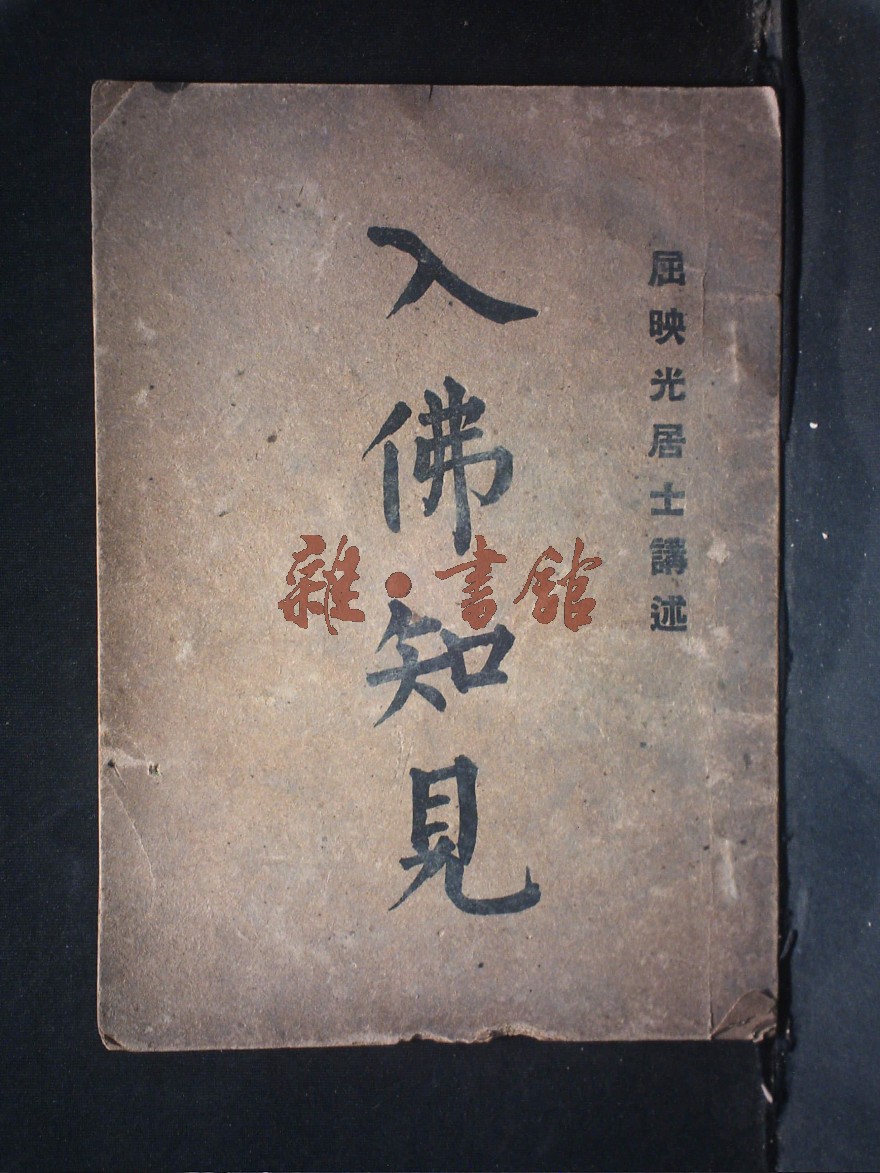 屈映光居士講述
入佛知見
雜·書館